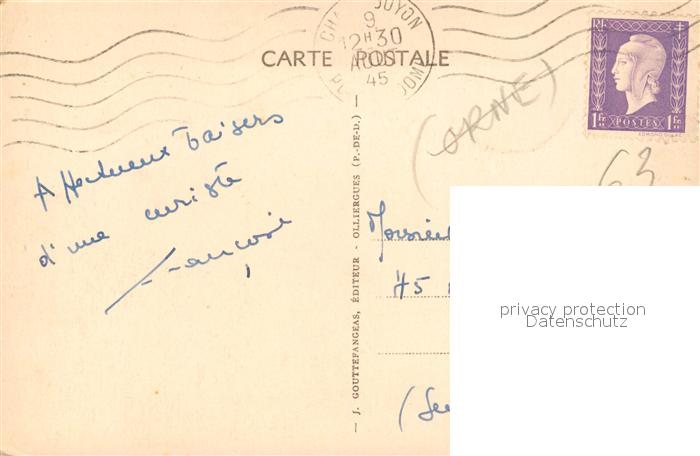 CARTE POSTALE
9
12H30
AOUT
45
RF
POSTES
1Fr 1Fr
(ORNE)
63
Affectueux baisers
d'une curiste
Françoise
— J. GOUTTEFANGEAS, ÉDITEUR - OLLIERGUES (P.-DE-D.) —
Monsieur
45
(Se
privacy protection
Datenschutz